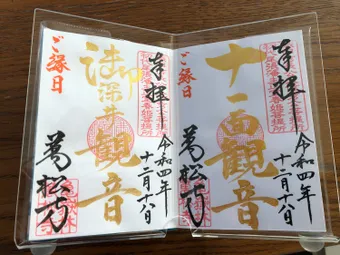 奉拝
十一面観音
ご縁日
令和四年
十二月十八日
萬松寺
奉拝
御深井観音
ご縁日
令和四年
十二月十八日
萬松寺